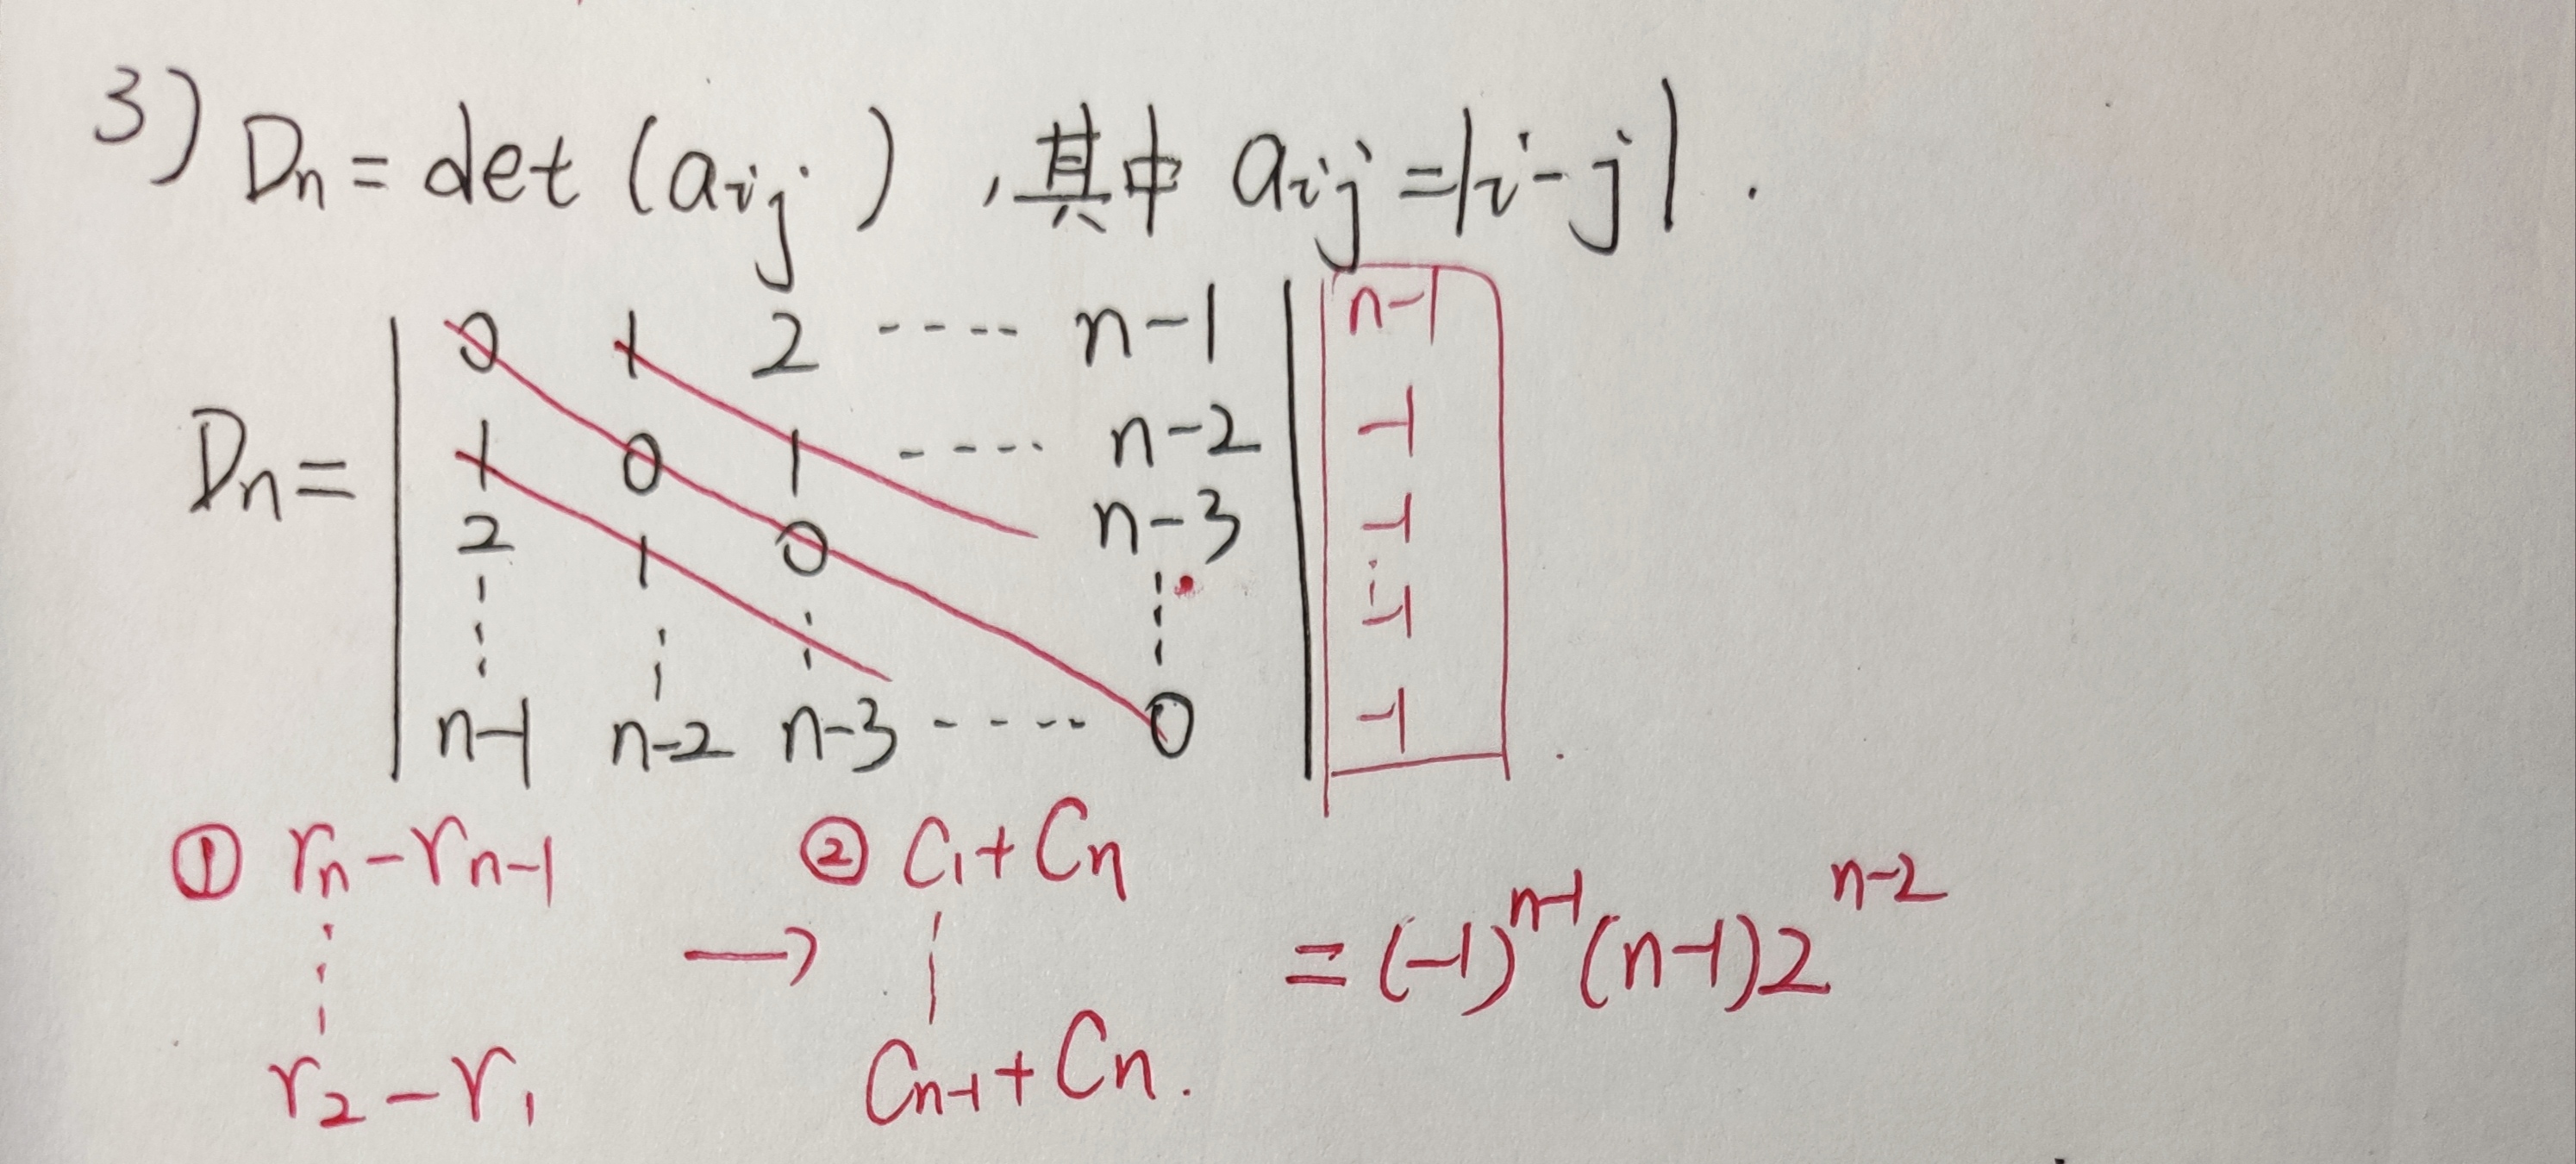 3) Dn = det (aij) , 其中 aij = |i-j| .
Dn = | 0 1 2 ---- n-1 | n-1
1 0 1 ---- n-2 -1
2 1 0 n-3 -1
-1
n-1 n-2 n-3 ---- 0 -1
① rn - rn-1
r2 - r1
→
② C1 + Cn
Cn-1 + Cn.
= (-1)^n-1 (n-1) 2^n-2